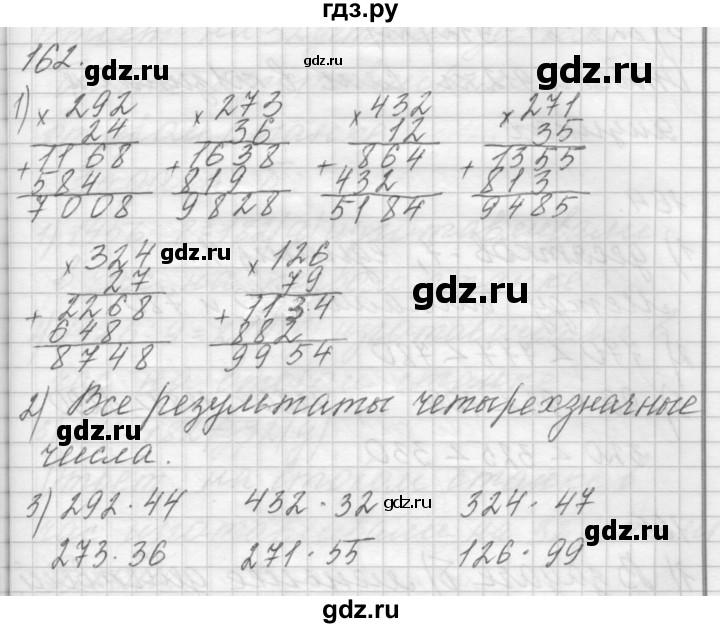 гдз.ру
162.
gdz.ru gdz.ru gdz.ru
1) × 292 × 273 × 432 × 271
24 36 12 35
+ 1168 + 1638 + 864 + 1355
584 819 432 813
7008 9828 5184 9485
gdz.ru
× 324 × 126
27 79
gdz.ru
+ 2268 + 1134
648 882
8748 9954
2) Все результаты четырехзначные
gdz.ru
числа.
3) 292 · 44 432 · 32 324 · 47
gdz.ru
273 · 36 271 · 55 126 · 99
gdz.ru